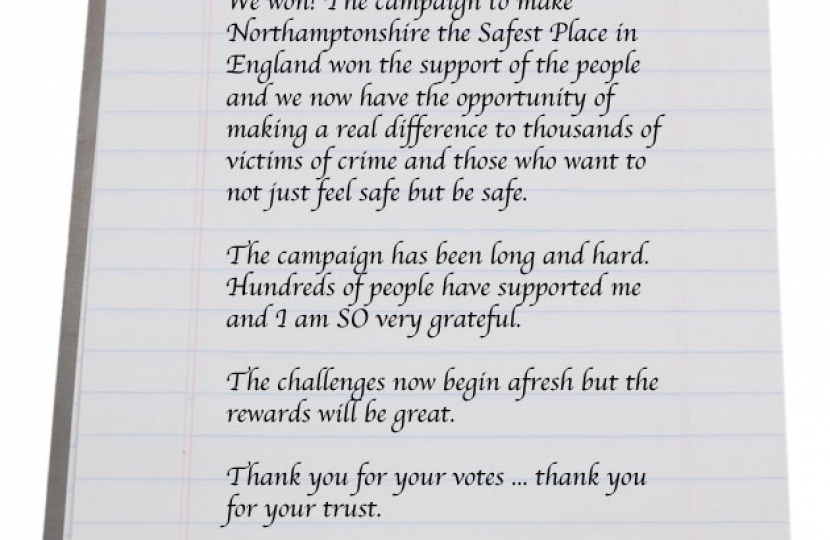 We won! The campaign to make
Northamptonshire the Safest Place in
England won the support of the people
and we now have the opportunity of
making a real difference to thousands of
victims of crime and those who want to
not just feel safe but be safe.
The campaign has been long and hard.
Hundreds of people have supported me
and I am SO very grateful.
The challenges now begin afresh but the
rewards will be great.
Thank you for your votes ... thank you
for your trust.